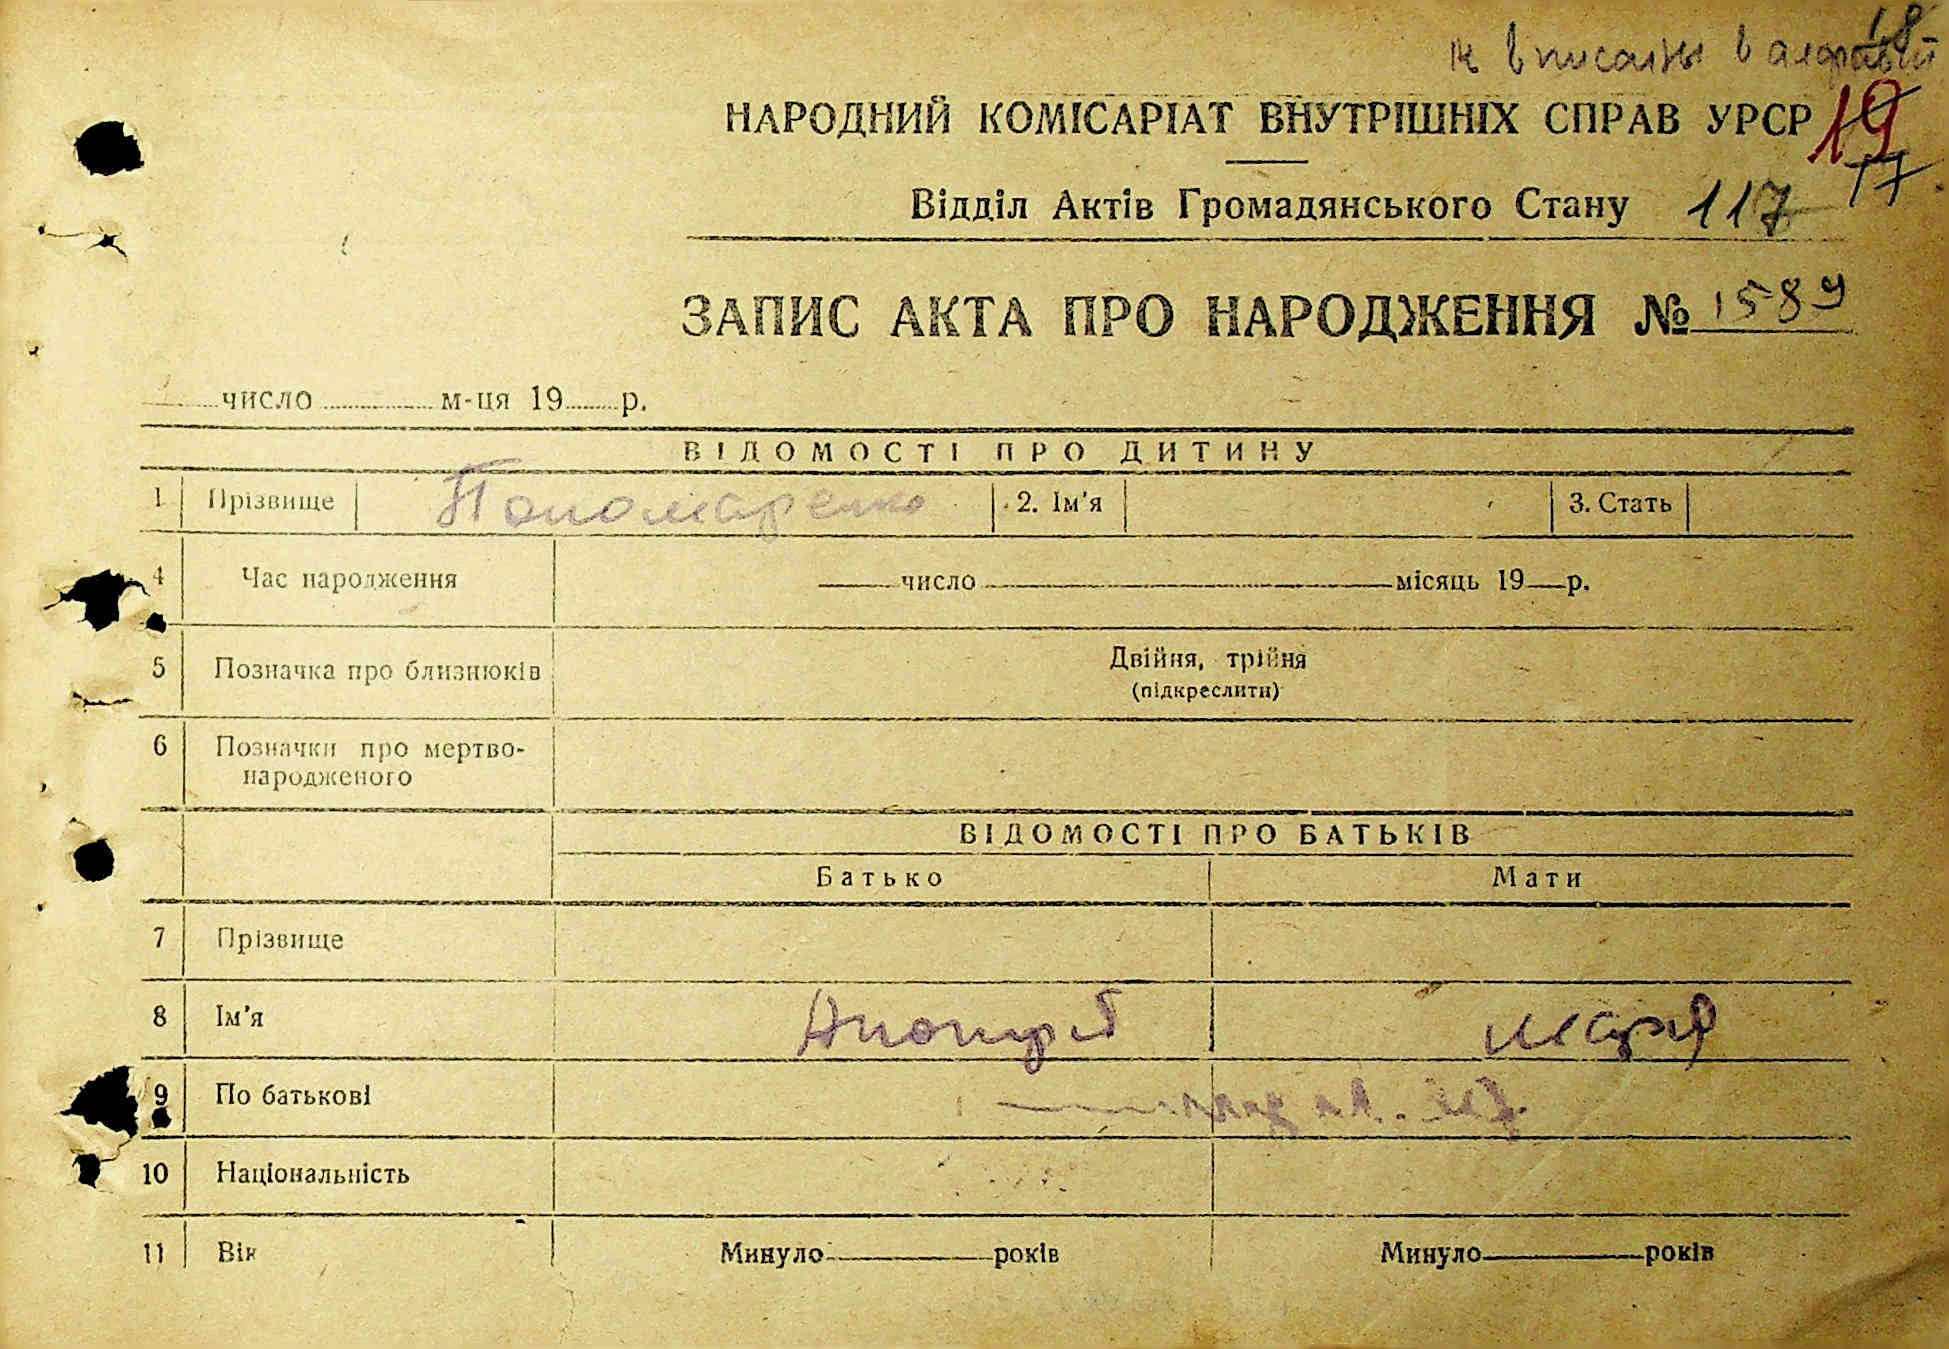 18
не вписаны в алфавит
НАРОДНИЙ КОМІСАРІАТ ВНУТРІШНІХ СПРАВ УРСР 19
17
Відділ Актів Громадянського Стану 117
ЗАПИС АКТА ПРО НАРОДЖЕННЯ № 1589
число м-ця 19 р.
ВІДОМОСТІ ПРО ДИТИНУ
1 Прізвище Пономаренко 2. Ім'я 3. Стать
4 Час народження число місяць 19 р.
5 Позначка про близнюків Двійня, трійня
(підкреслити)
6 Позначки про мертво-
народженого
ВІДОМОСТІ ПРО БАТЬКІВ
Батько Мати
7 Прізвище
8 Ім'я Мария
9 По батькові
10 Національність
11 Вік Минуло років Минуло років